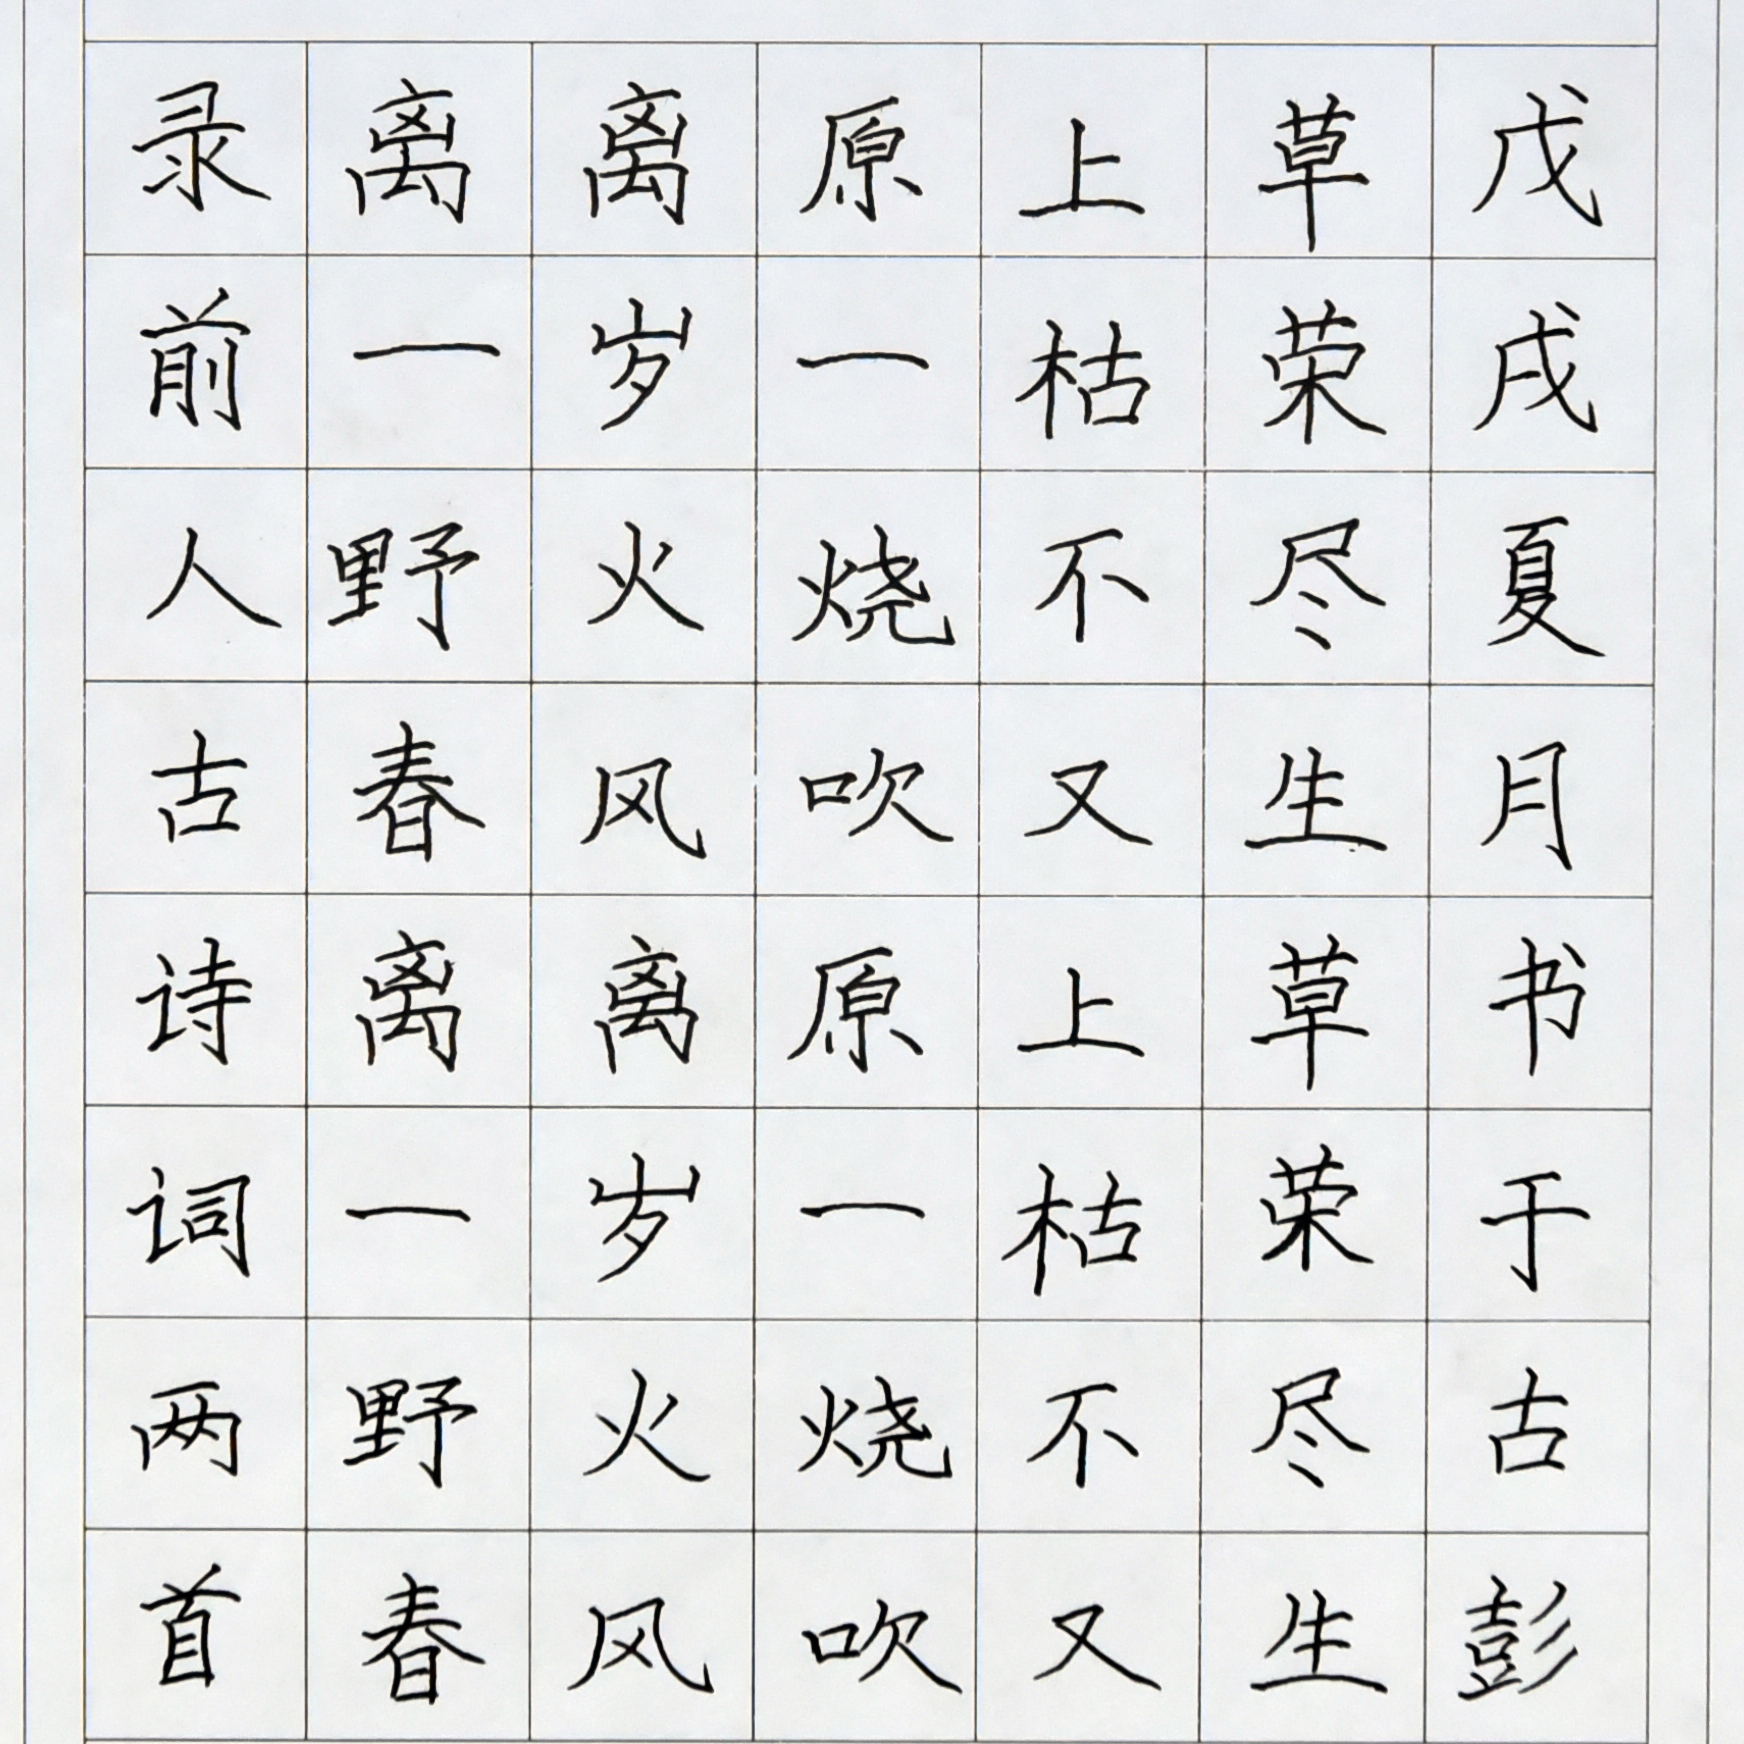 录前人古诗词两首
离离原上草
一岁一枯荣
野火烧不尽
春风吹又生
离离原上草
一岁一枯荣
野火烧不尽
春风吹又生
戊戌夏月书于古彭